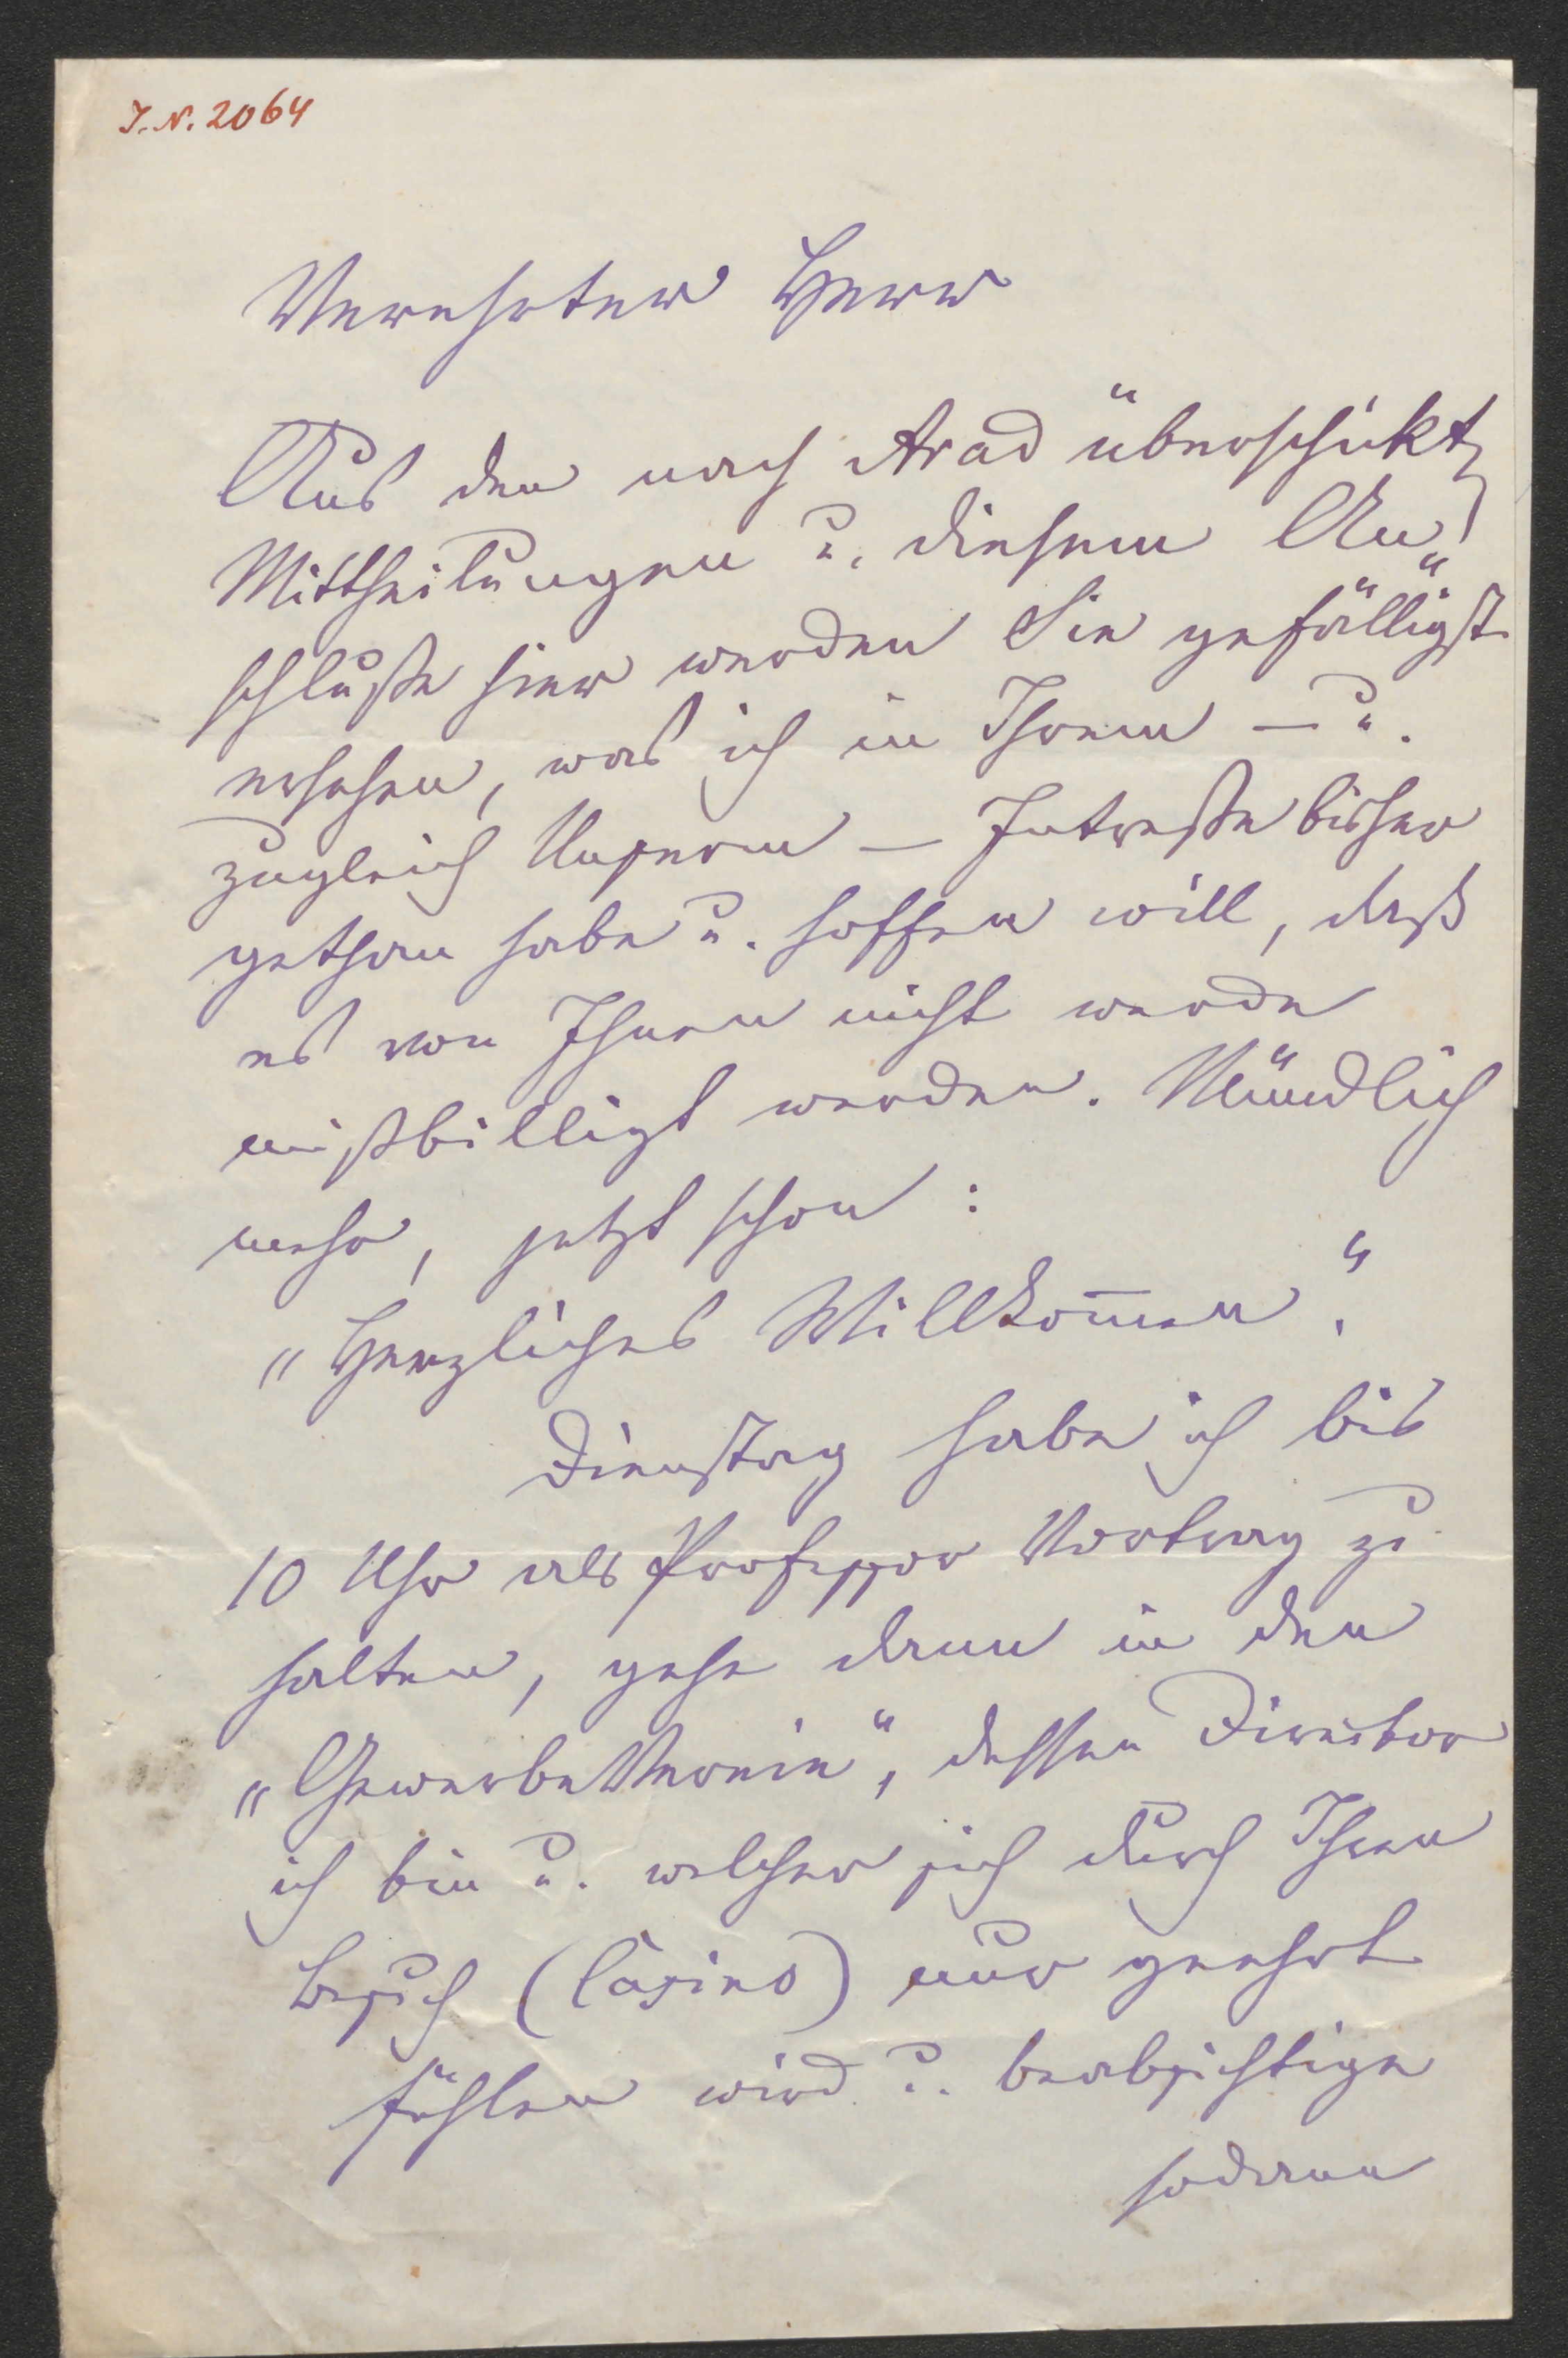 J. N. 2064
Verehrter Herr
Aus den nach Arad überschikt
Mittheilungen u. diesem An„
schluße hier werden Sie gefälligst
ersehen, was ich in Ihrem — u.
zugleich Unserm — Intreße bisher
gethan habe u. hoffen will, daß
es von Ihnen nicht werde
mißbilligt werden. Mündlich
mehr, jetzt schon :
„Herzliches Willkom̄en“.
Dienstag habe ich bis
10 Uhr als Professor Vortrag zu
halten, gehe dann in den
„GewerbeVerein“, dessen Director
ich bin u. welcher sich durch Ihren
Besuch (Casino) nur geehrt
fühlen wird u. beabsichtige
sodann